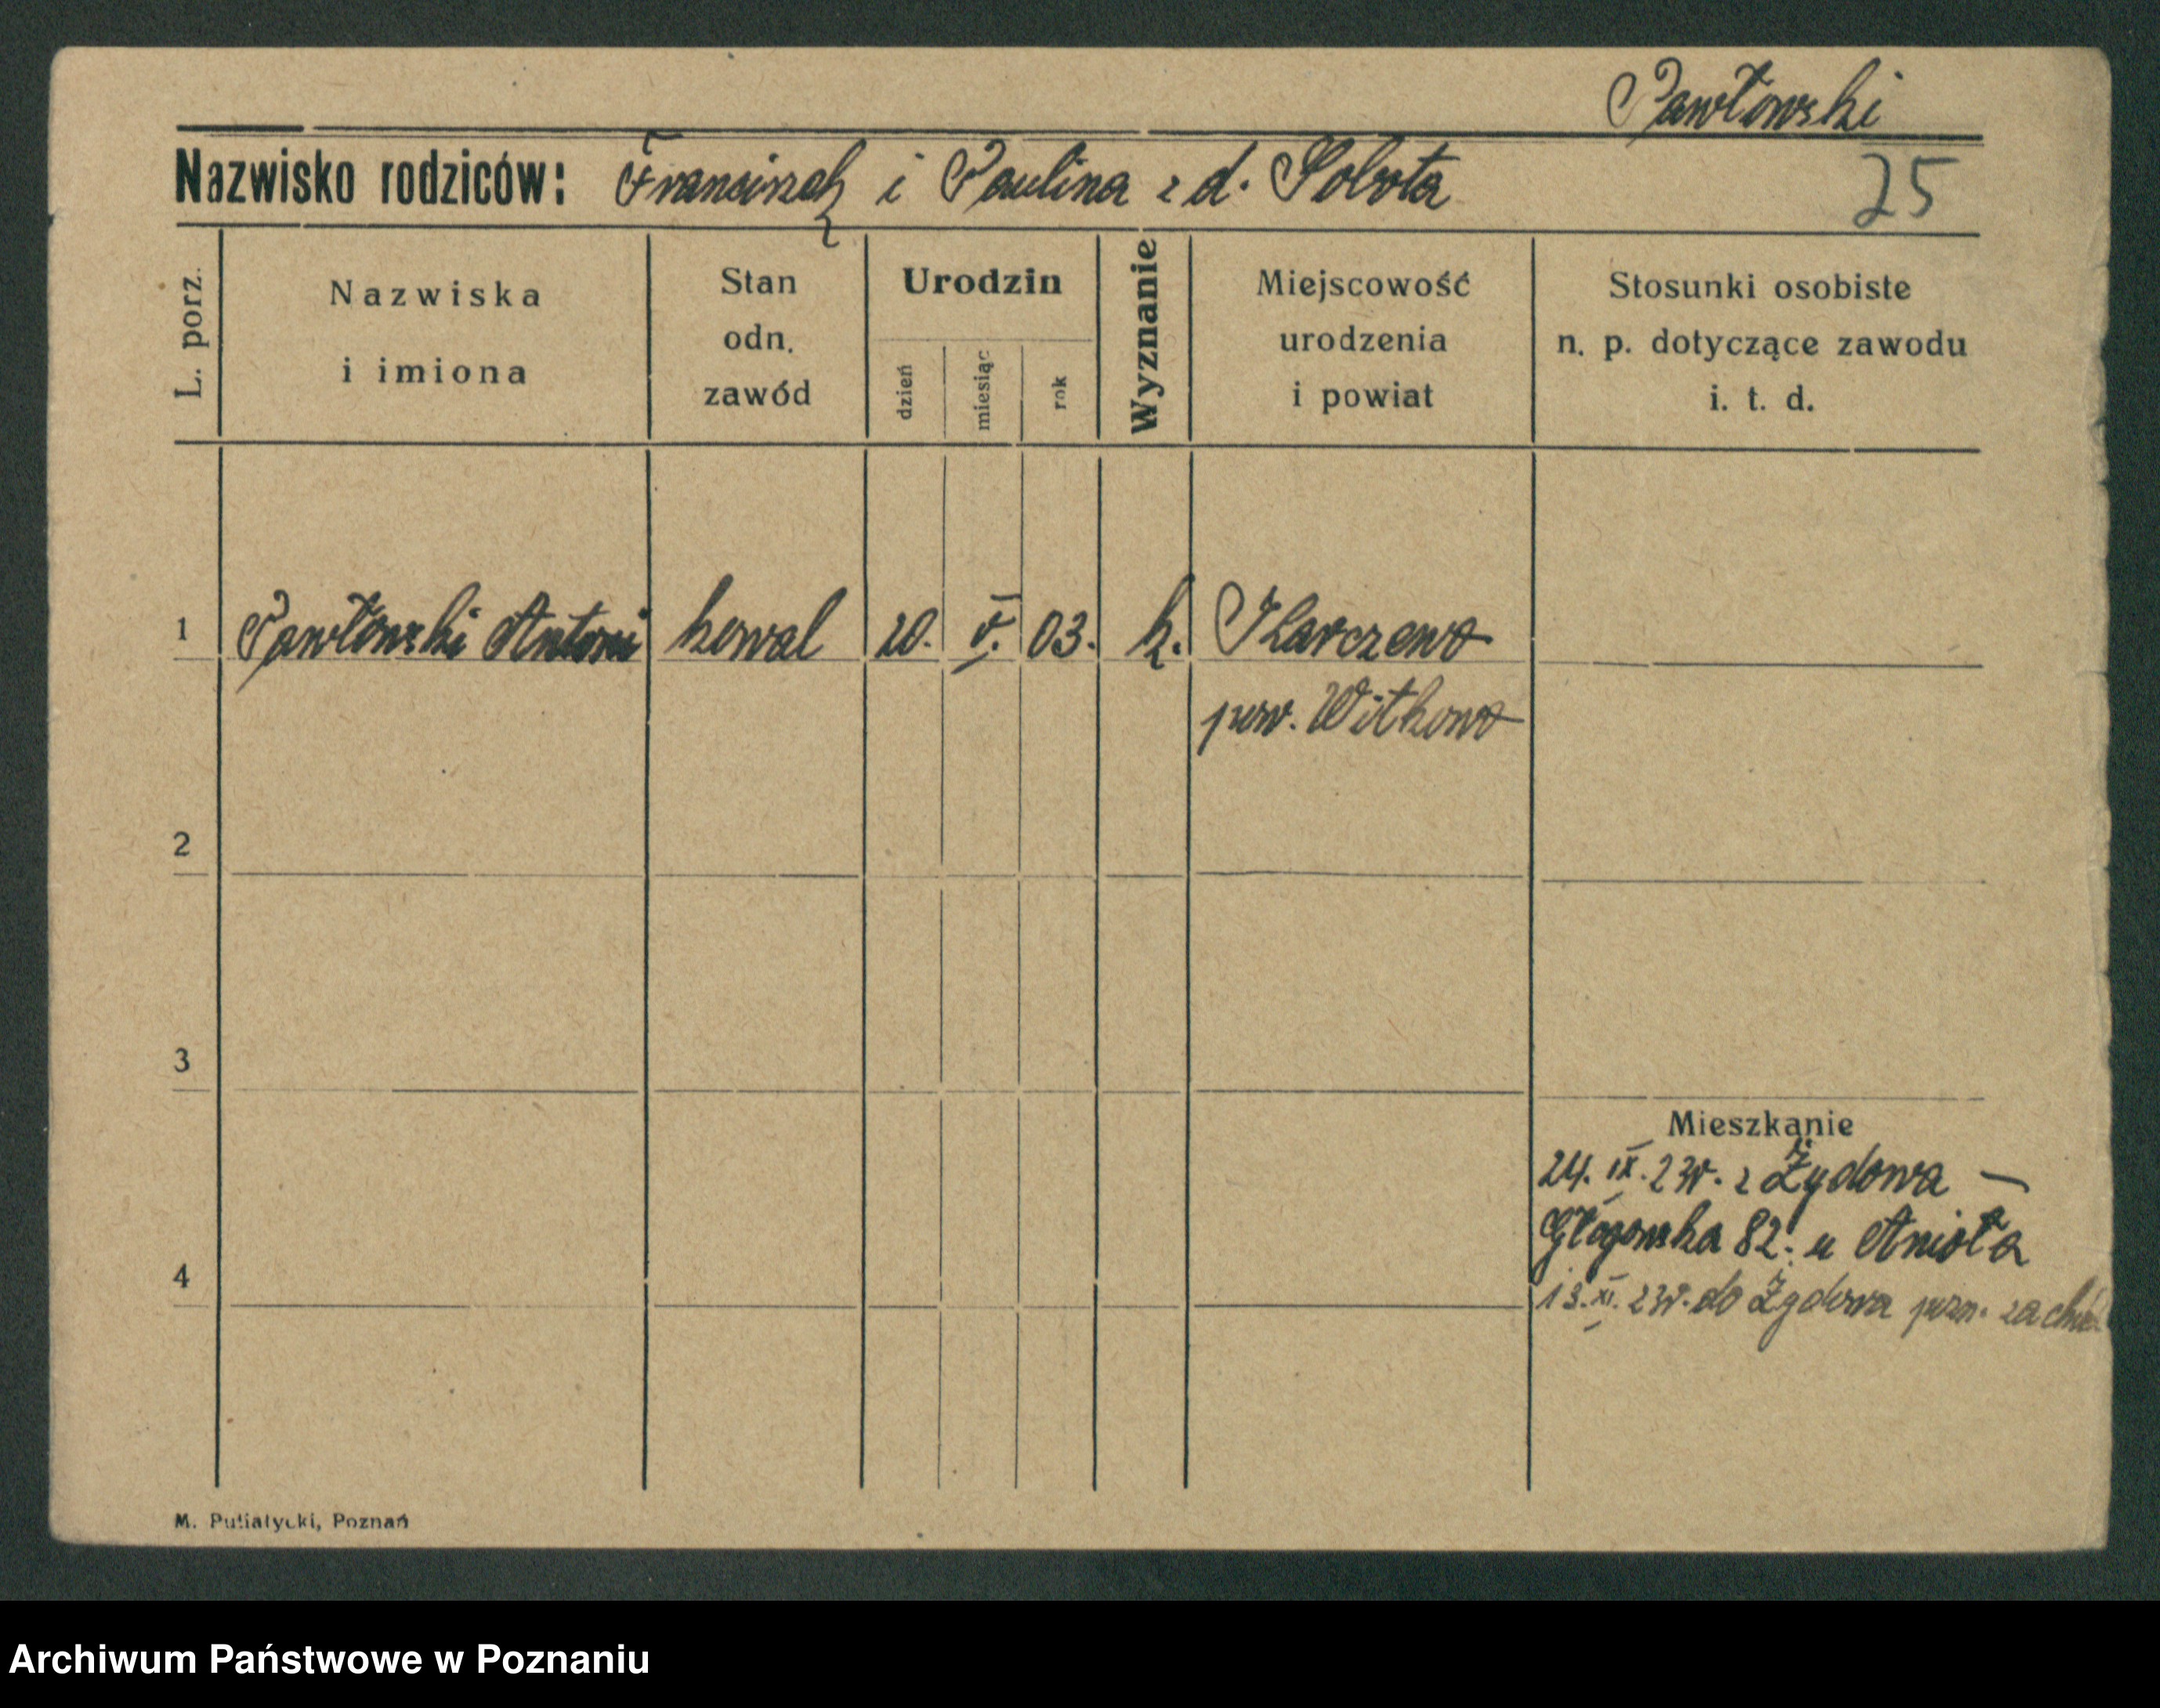 Pawłowski
Nazwisko rodziców: Franciszek i Paulina z d. Sobota
25
L. porz.
Nazwiska
i imiona
Stan
odn.
zawód
Urodzin
dzień
miesiąc
rok
Wyznanie
Miejscowość
urodzenia
i powiat
Stosunki osobiste
n. p. dotyczące zawodu
i. t. d.
1 Pawłowski Antoni kowal 20. V. 03. k. Karczewo
pow. Witkowo
2
3
Mieszkanie
24. IX. 23r. z Żydowa —
Głogowska 82. u Anioła
4
13. XI. 23r. do Żydowa pozn. zachód
M. Putiatycki, Poznań
Archiwum Państwowe w Poznaniu